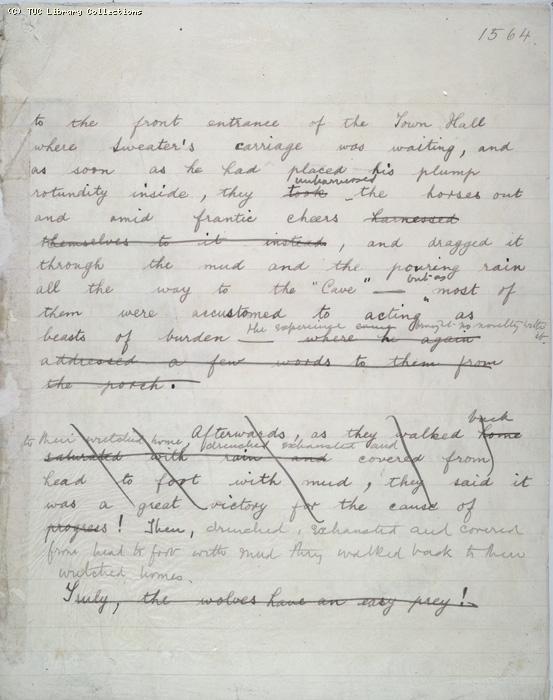 (C) TUC Library Collections
1564.
to the front entrance of the Town Hall
where Sweater's carriage was waiting, and
as soon as he had placed his plump
unharnessed
rotundity inside, they took the horses out
and amid frantic cheers harnessed
themselves to it instead, and dragged it
through the mud and the pouring rain
all the way to the "Cave" — most of
but as
them were accustomed to acting as
"beasts of burden" — where he again
the experience
no novelty
addressed a few words to them from
the porch.
back
Afterwards, as they walked home
to their wretched home, drenched exhausted and
saturated with rain and covered from
head to foot with mud, they said it
was a great victory for the cause of
progress! Then, drenched, exhausted and covered
from head to foot with mud they walked back to their
wretched homes.
Truly, the wolves have an easy prey!